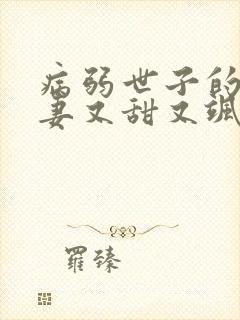 病弱世子的
妻又甜又飒
羅臻